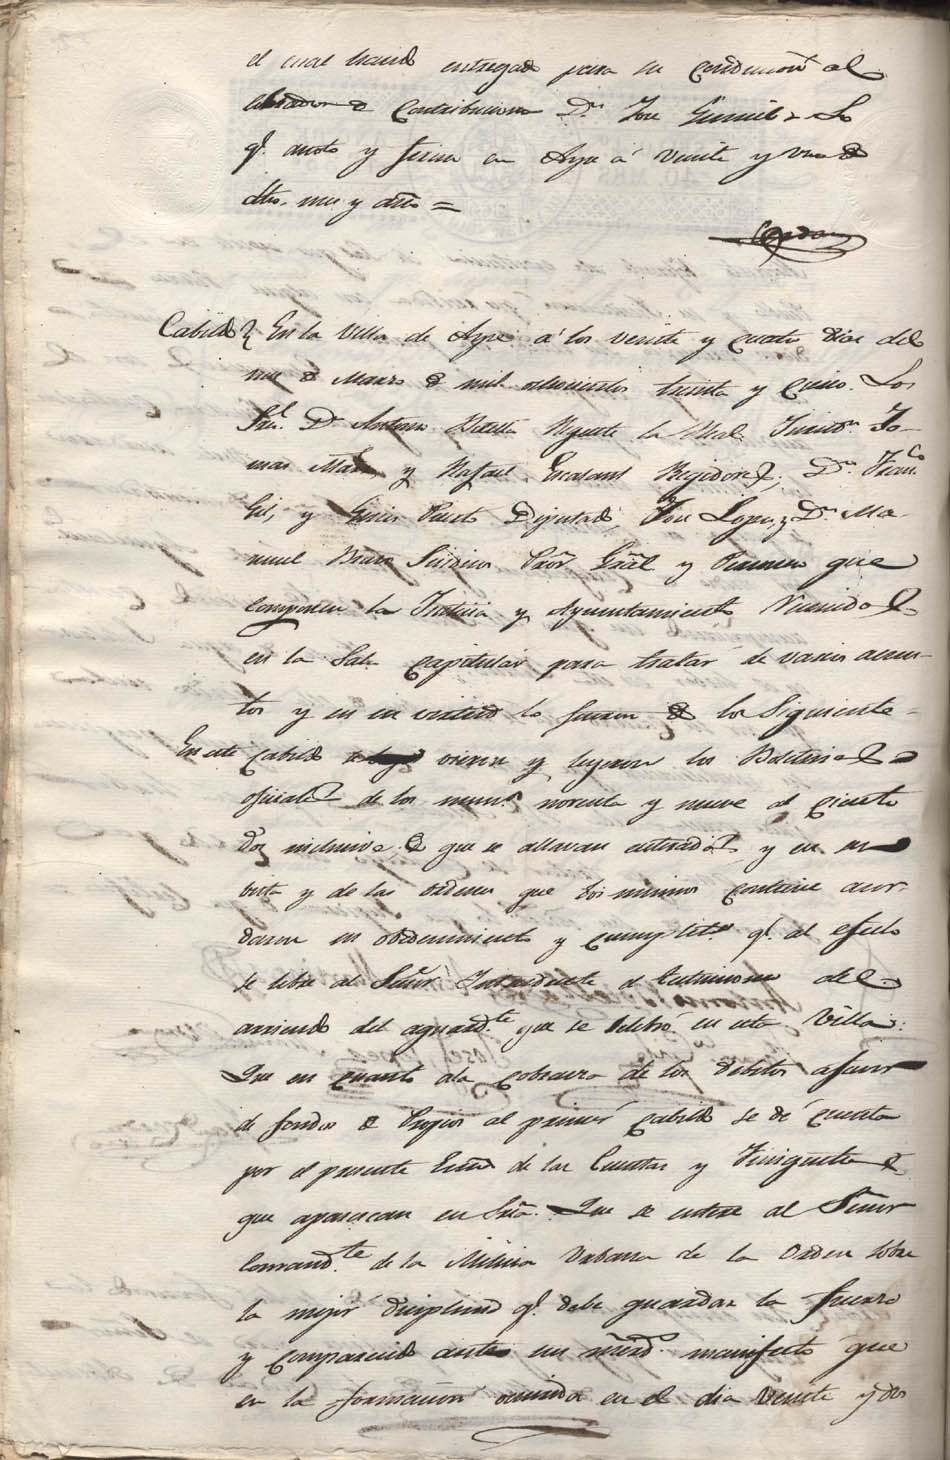 el cual haviendo entregado para su conduccion al
cobrador de Contribuciones Dn. Jose
qe. anoto y firmo en Aspe á veinte y uno de
dho. mes y año =
Cabildo En la Villa de Aspe á los veinte y cuatro dias del
mes de Marzo de mil ochocientos treinta y cinco. Los
Sres. Dn. Antonio Botella Regente la Real Jurisdn. To-
mas y Rafael Regidores, Dn. Franco.
Gil, y Gines Diputados, Jose Lopez, Dn. Ma-
nuel Bravo Sindicos Pror. Gral. y Personero que
componen la Justicia y Ayuntamiento Reunidos
en la Sala Capitular para tratar de varios acuer-
dos y en su virtud lo fueron de los Siguiente-
En este Cabildo vieron y leyeron los Boletines
oficiales de los numos. noventa y nueve al ciento
dos inclusive de que se allavan enterados y en su
vista y de las ordenes que los mismos contiene acor-
daron su obedecimiento y cumplito. qe. al efecto
se libre al Señor Intendente el testimonio del
arriendo del aguardte. que se celebró en esta Villa:
Que en cuanto ala cobranza de los debitos afavor
de fondos de Propios al primer Cabildo se dé cuenta
por el presente Esno. de las Cuentas y Finiquitos
que aparezcan en Sria. Que se entere al Señor
Comandte. de la Milicia Urbana de la Orden sobre
la mejor diciplina qe. debe guardar la fuerza
y comparecido ante su mrd. manifesto que
en la formacion en el dia veinte y dos